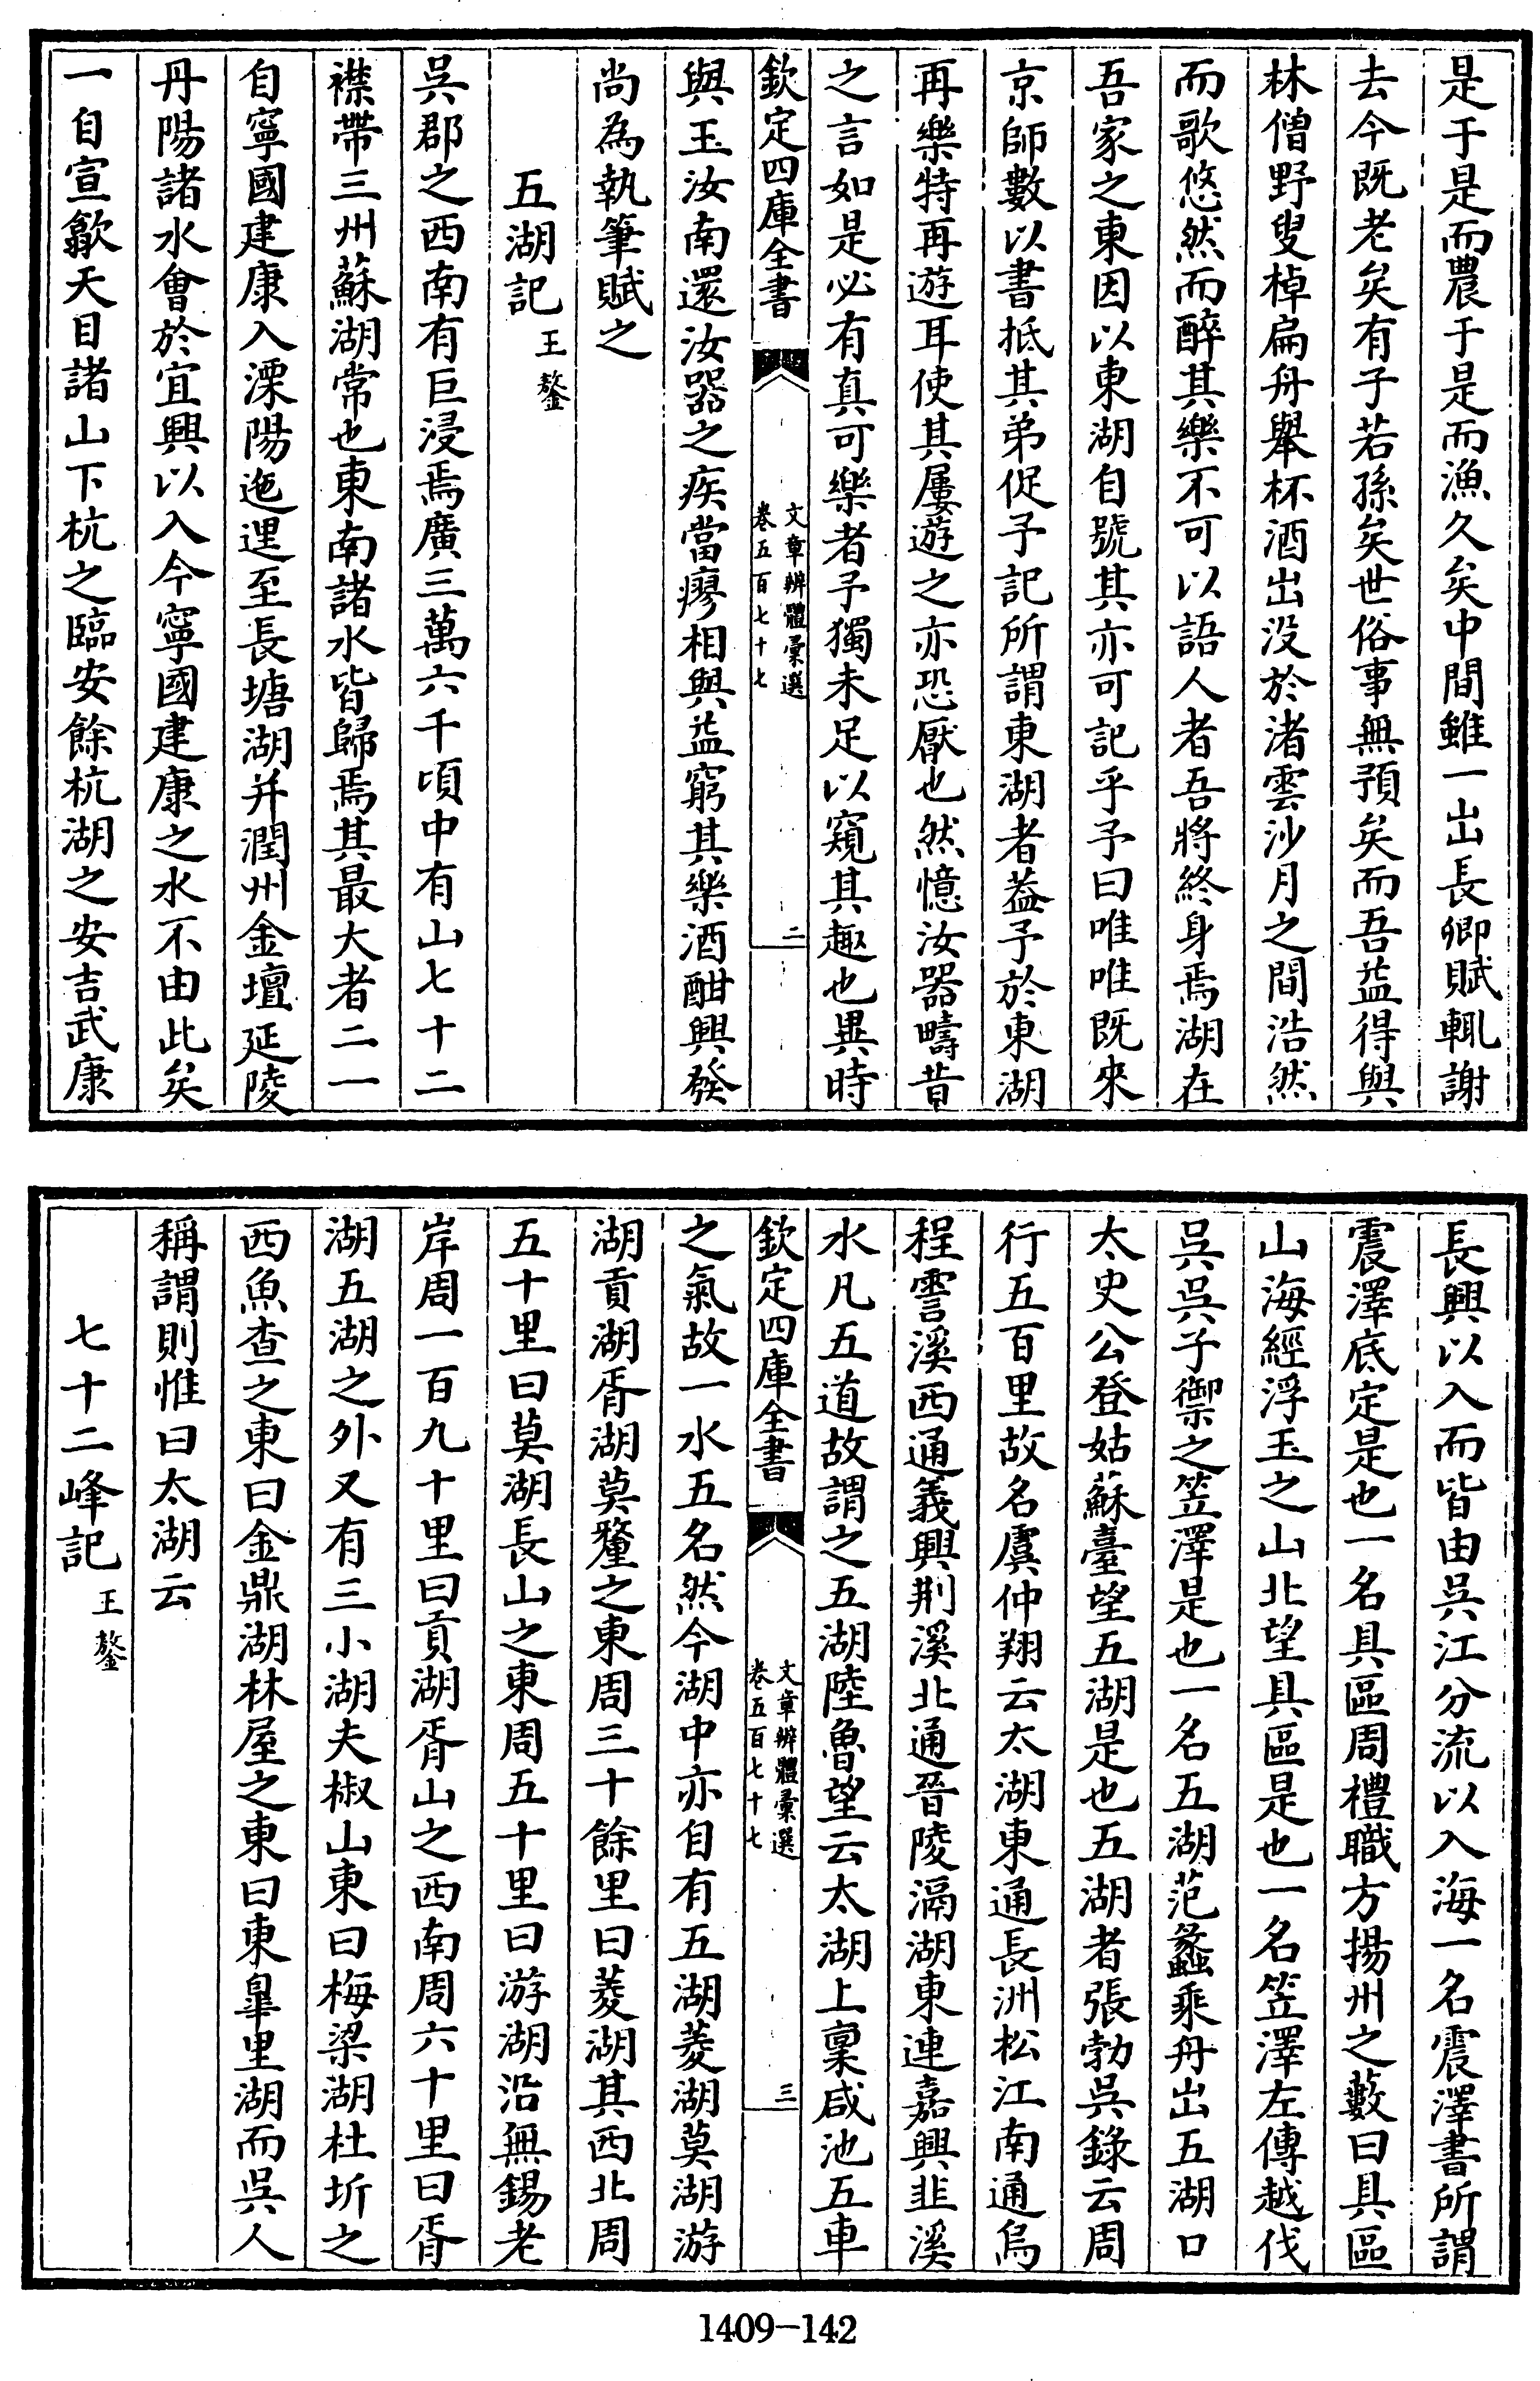 是于是而農于是而漁久矣中間雖一出長卿賦輒謝
去今既老矣有子若孫矣世俗事無預矣而吾益得與
林僧野叟棹扁舟舉杯酒出没於渚雲沙月之間浩然
而歌悠然而醉其樂不可以語人者吾將終身焉湖在
吾家之東因以東湖自號其亦可記乎予曰唯唯既來
京師數以書抵其弟促予記所謂東湖者葢予於東湖
再樂特再遊耳使其屢遊之亦恐厭也然憶汝器疇昔
之言如是必有真可樂者予獨未足以窺其趣也異時
欽定四庫全書
文章辨體彙選
卷五百七十七
二
與玉汝南還汝器之疾當瘳相與益窮其樂酒酣興發
尚為執筆賦之
五湖記
王鏊
吳郡之西南有巨浸焉廣三萬六千頃中有山七十二
襟帶三州蘇湖常也東南諸水皆歸焉其最大者二一
自寧國建康入溧陽迤邐至長塘湖并潤州金壇延陵
丹陽諸水會於宜興以入今寧國建康之水不由此矣
一自宣歙天目諸山下杭之臨安餘杭湖之安吉武康
長興以入而皆由吳江分流以入海一名震澤書所謂
震澤底定是也一名具區周禮職方揚州之藪曰具區
山海經浮玉之山北望具區是也一名笠澤左傳越伐
吳吳子禦之笠澤是也一名五湖范蠡乘舟出五湖口
太史公登姑蘇臺望五湖是也五湖者張勃吳錄云周
行五百里故名虞仲翔云太湖東通長洲松江南通烏
程霅溪西通義興荆溪北通晉陵滆湖東連嘉興韭溪
水凡五道故謂之五湖陸魯望云太湖上稟咸池五車
欽定四庫全書
文章辨體彙選
卷五百七十七
三
之氣故一水五名然今湖中亦自有五湖菱湖莫湖游
湖貢湖胥湖莫釐之東周三十餘里曰菱湖其西北周
五十里曰莫湖長山之東周五十里曰游湖沿無錫老
岸周一百九十里曰貢湖胥山之西南周六十里曰胥
湖五湖之外又有三小湖夫椒山東曰梅梁湖杜圻之
西魚查之東曰金鼎湖林屋之東曰東皐里湖而吳人
稱謂則惟曰太湖云
七十二峰記
王鏊
1409-142